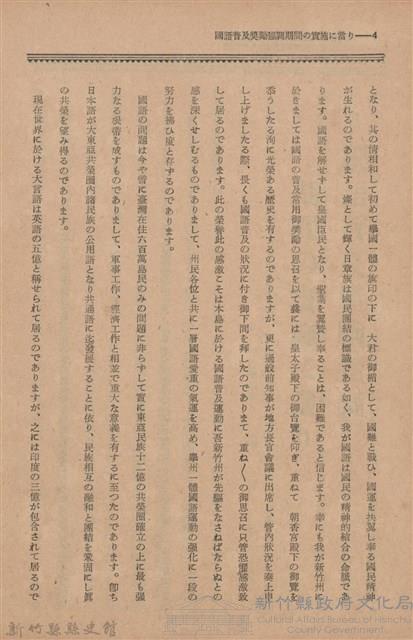 國語普及奬勵強調期間の實施に當り——4
となり、其の情相和して初めて擧國一體の旗印の下に 大君の御楯として、國難と戰ひ、國運を扶翼し奉る國民精神
が生れるのであります。燦として輝く日章旗は國民團結の標識である如く、我が國語は國民の精神的結合の命脈であ
ります。國語を解せずして皇國臣民となり、聖業を翼賛し奉ることは、困難であると信じます。幸にも我が新竹州に
於きましては國語の普及常用御奬勵の思召を以て曩には 皇太子殿下の御台覽を仰ぎ、重ねて 朝香宮殿下の御覽を
忝うしたる洵に光榮ある歷史を有するのでありますが、更に過般前知事が地方長官會議に出席し、管內狀況を奏上申
し上げましたる際、畏くも國語普及の狀況に付き御下問を拜したのでありまて、重ね〲の御思召に只管恐懼感激致
して居るのであります。此の榮譽此の感激こそは本島に於ける國語普及運動に吾新竹州が先驅をなさねばならぬとの
感を深くせしむるものでありまして、州民各位と共に一層國語愛重の氣運を高め、擧州一體國語運動の强化に一段の
努力を拂ひ度と存ずるのであります。
國語の問題は今や啻に臺灣在住六百萬島民のみの問題に非らずして實に東亞民族十二億の共榮圈確立の上に最も强
力なる紐帶を成すものでありまして、軍事工作、經濟工作と相並で重大な意義を有するに至つたのであります。卽ち
日本語が大東亞共榮圈內諸民族の公用語となり共通語に迄發展することに依り、民族相互の融和と團結を鞏固にし眞
の共榮を望み得るのであります。
現在世界に於ける大言語は英語の五億と稱せられて居るのでありますが、之には印度の三億が包含されて居るので
新竹縣縣史館
新竹縣政府文化局
Cultural Affairs Bureau of Hsinchu
County Government